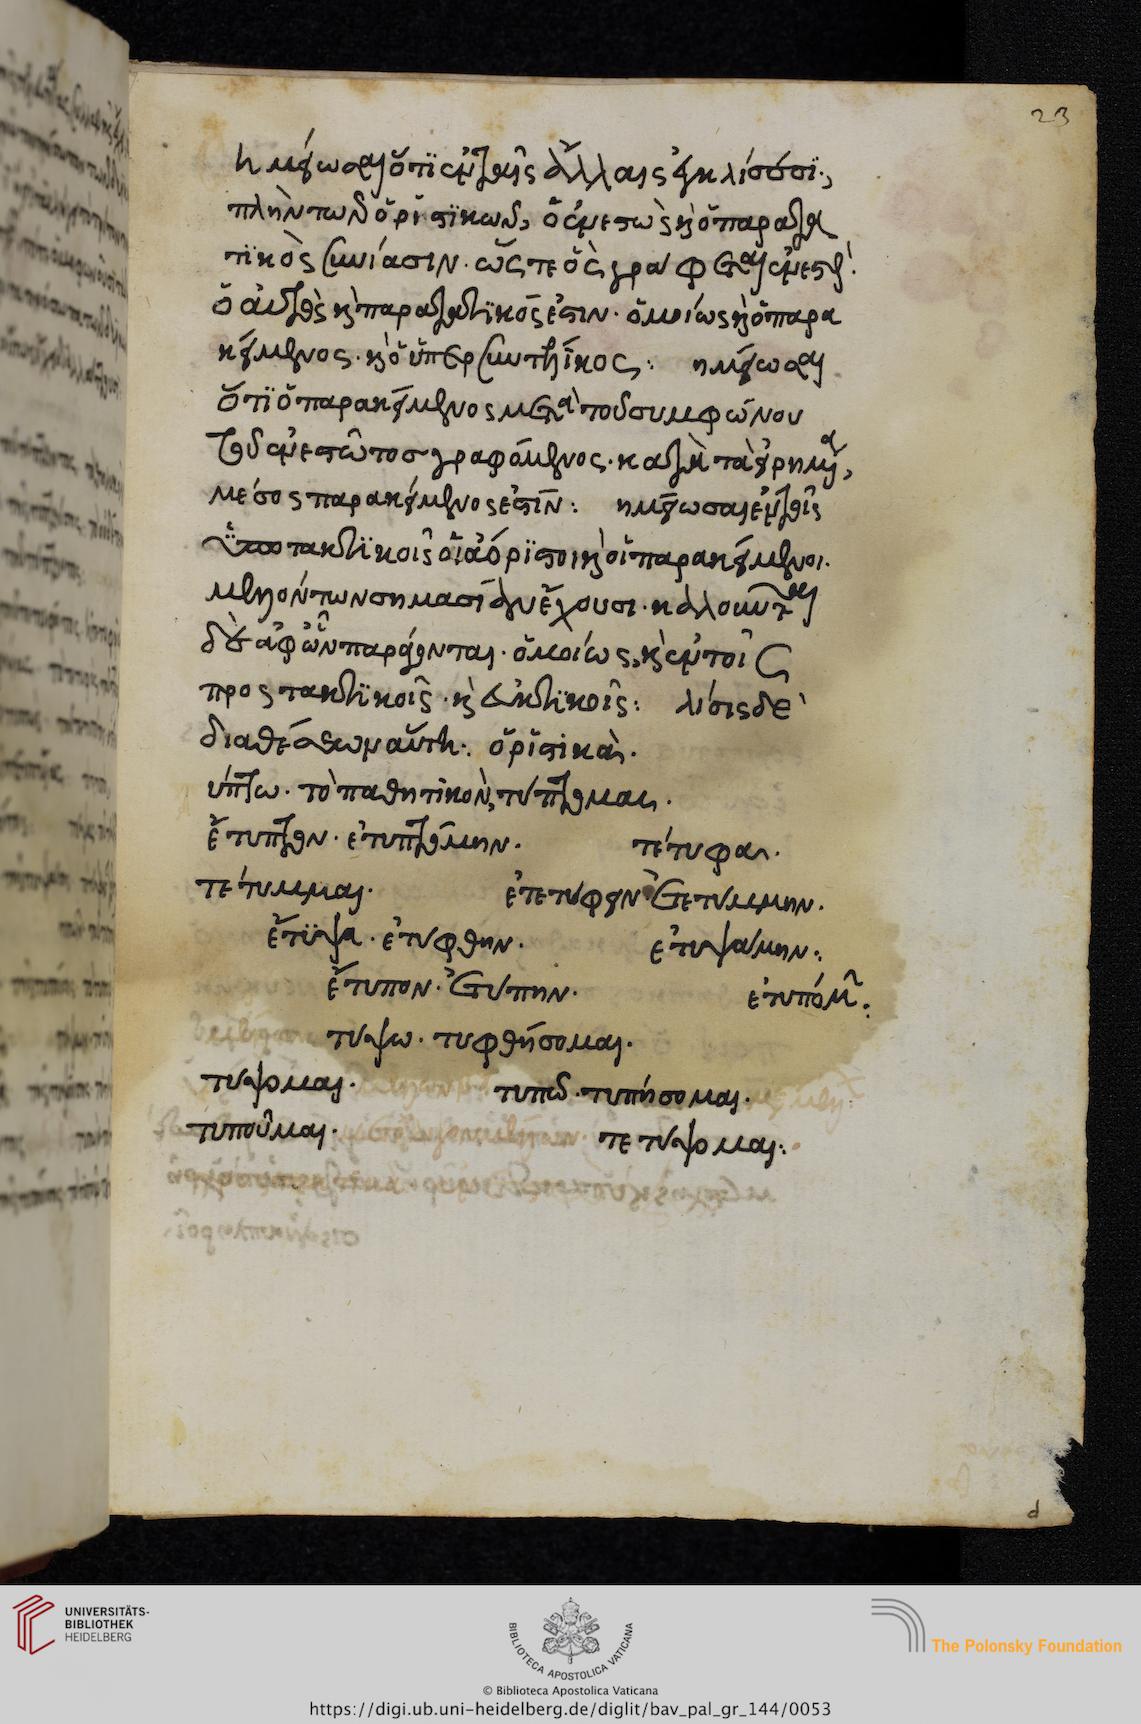 23
ημείωσαι ὅτι ἐν ταῖς ἄλλαις ἐγκλίσεσι,
πλὴν τῶν ὁριστικῶν, ὁ ἐνεστὼς καὶ ὁ παρατα
τικὸς συνίασιν. ὥστε ὃς γράφεται ἐνεστὼς.
ὁ αὐτὸς καὶ παρατατικός ἐστιν. ὁμοίως καὶ ὁ παρα
κείμενος. καὶ ὁ ὑπερσυντελικος: ημείωσαι
ὅτι ὁ παρακείμενος μετὰ τοῦ συμφώνου
τοῦ ἐνεστῶτος γραφόμενος. κατὰ τὰ εἰρημένα,
μέσος παρακείμενος ἐστίν: ημείωσαι ἐν τοῖς
ὑποτακτικοῖς οἱ ἀόριστοι καὶ οἱ παρακείμενοι.
μελλόντων σημασίαν ἔχουσι. καλοῦνται
δὲ ἀφ' ὧν παράγονται. ὁμοίως, καὶ ἐν τοῖς
προστακτικοῖς. καὶ εὐκτικοῖς: λίσις δὲ
διαθέσεων αὕτη: ὁριστικὰ.
ύπτω. τὸ παθητικὸν, τύπτομαι.
ἔτυπτον. ἐτυπτόμην. τέτυφα.
τέτυμμαι. ἐτετύφειν ἐτετύμμην.
ἔτυψα. ἐτύφθην. ἐτυψάμην:
ἔτυπον. ἐτύπην. ἐτυπόμην:
τυψω. τυφθήσομαι.
τυψομαι. τυπῶ. τυπήσομαι.
τυποῦμαι. τετυψομαι:
d
UNIVERSITÄTS-
BIBLIOTHEK
HEIDELBERG
BIBLIOTECA APOSTOLICA VATICANA
The Polonsky Foundation
© Biblioteca Apostolica Vaticana
https://digi.ub.uni-heidelberg.de/diglit/bav_pal_gr_144/0053